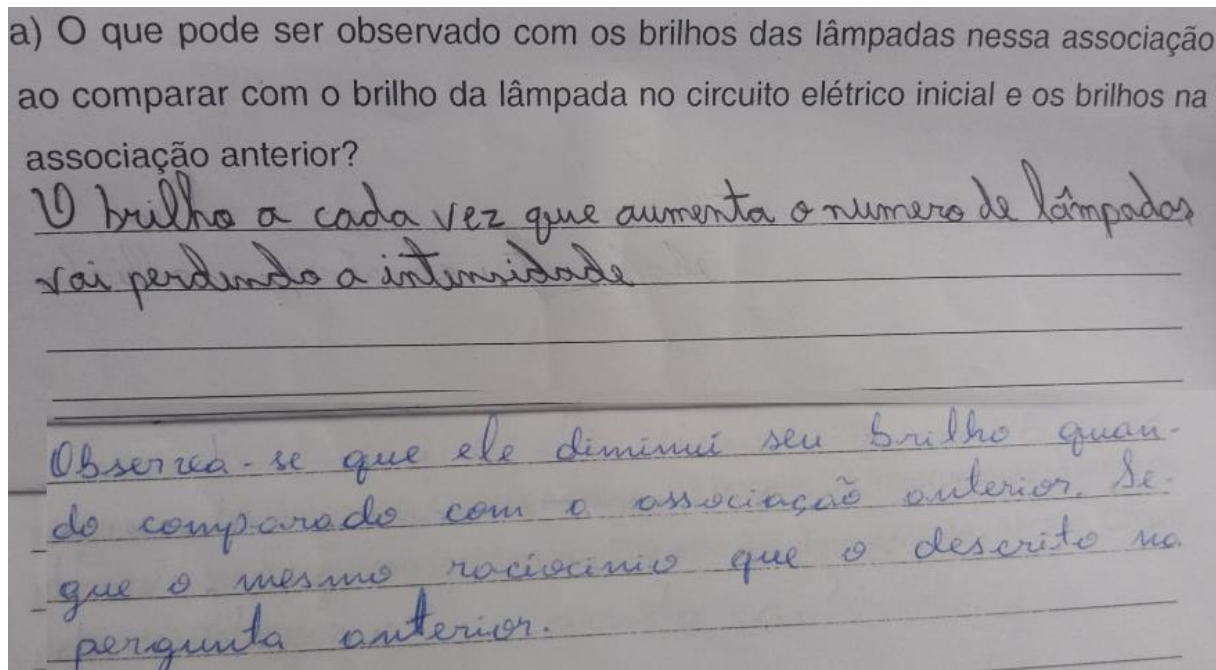 a) O que pode ser observado com os brilhos das lâmpadas nessa associação
ao comparar com o brilho da lâmpada no circuito elétrico inicial e os brilhos na
associação anterior?
O brilho a cada vez que aumenta o numero de lâmpadas
vai perdendo a intensidade
Observa-se que ele diminui seu brilho quan-
do comparado com a associação anterior. Se-
gue o mesmo raciocinio que o descrito na
pergunta anterior.